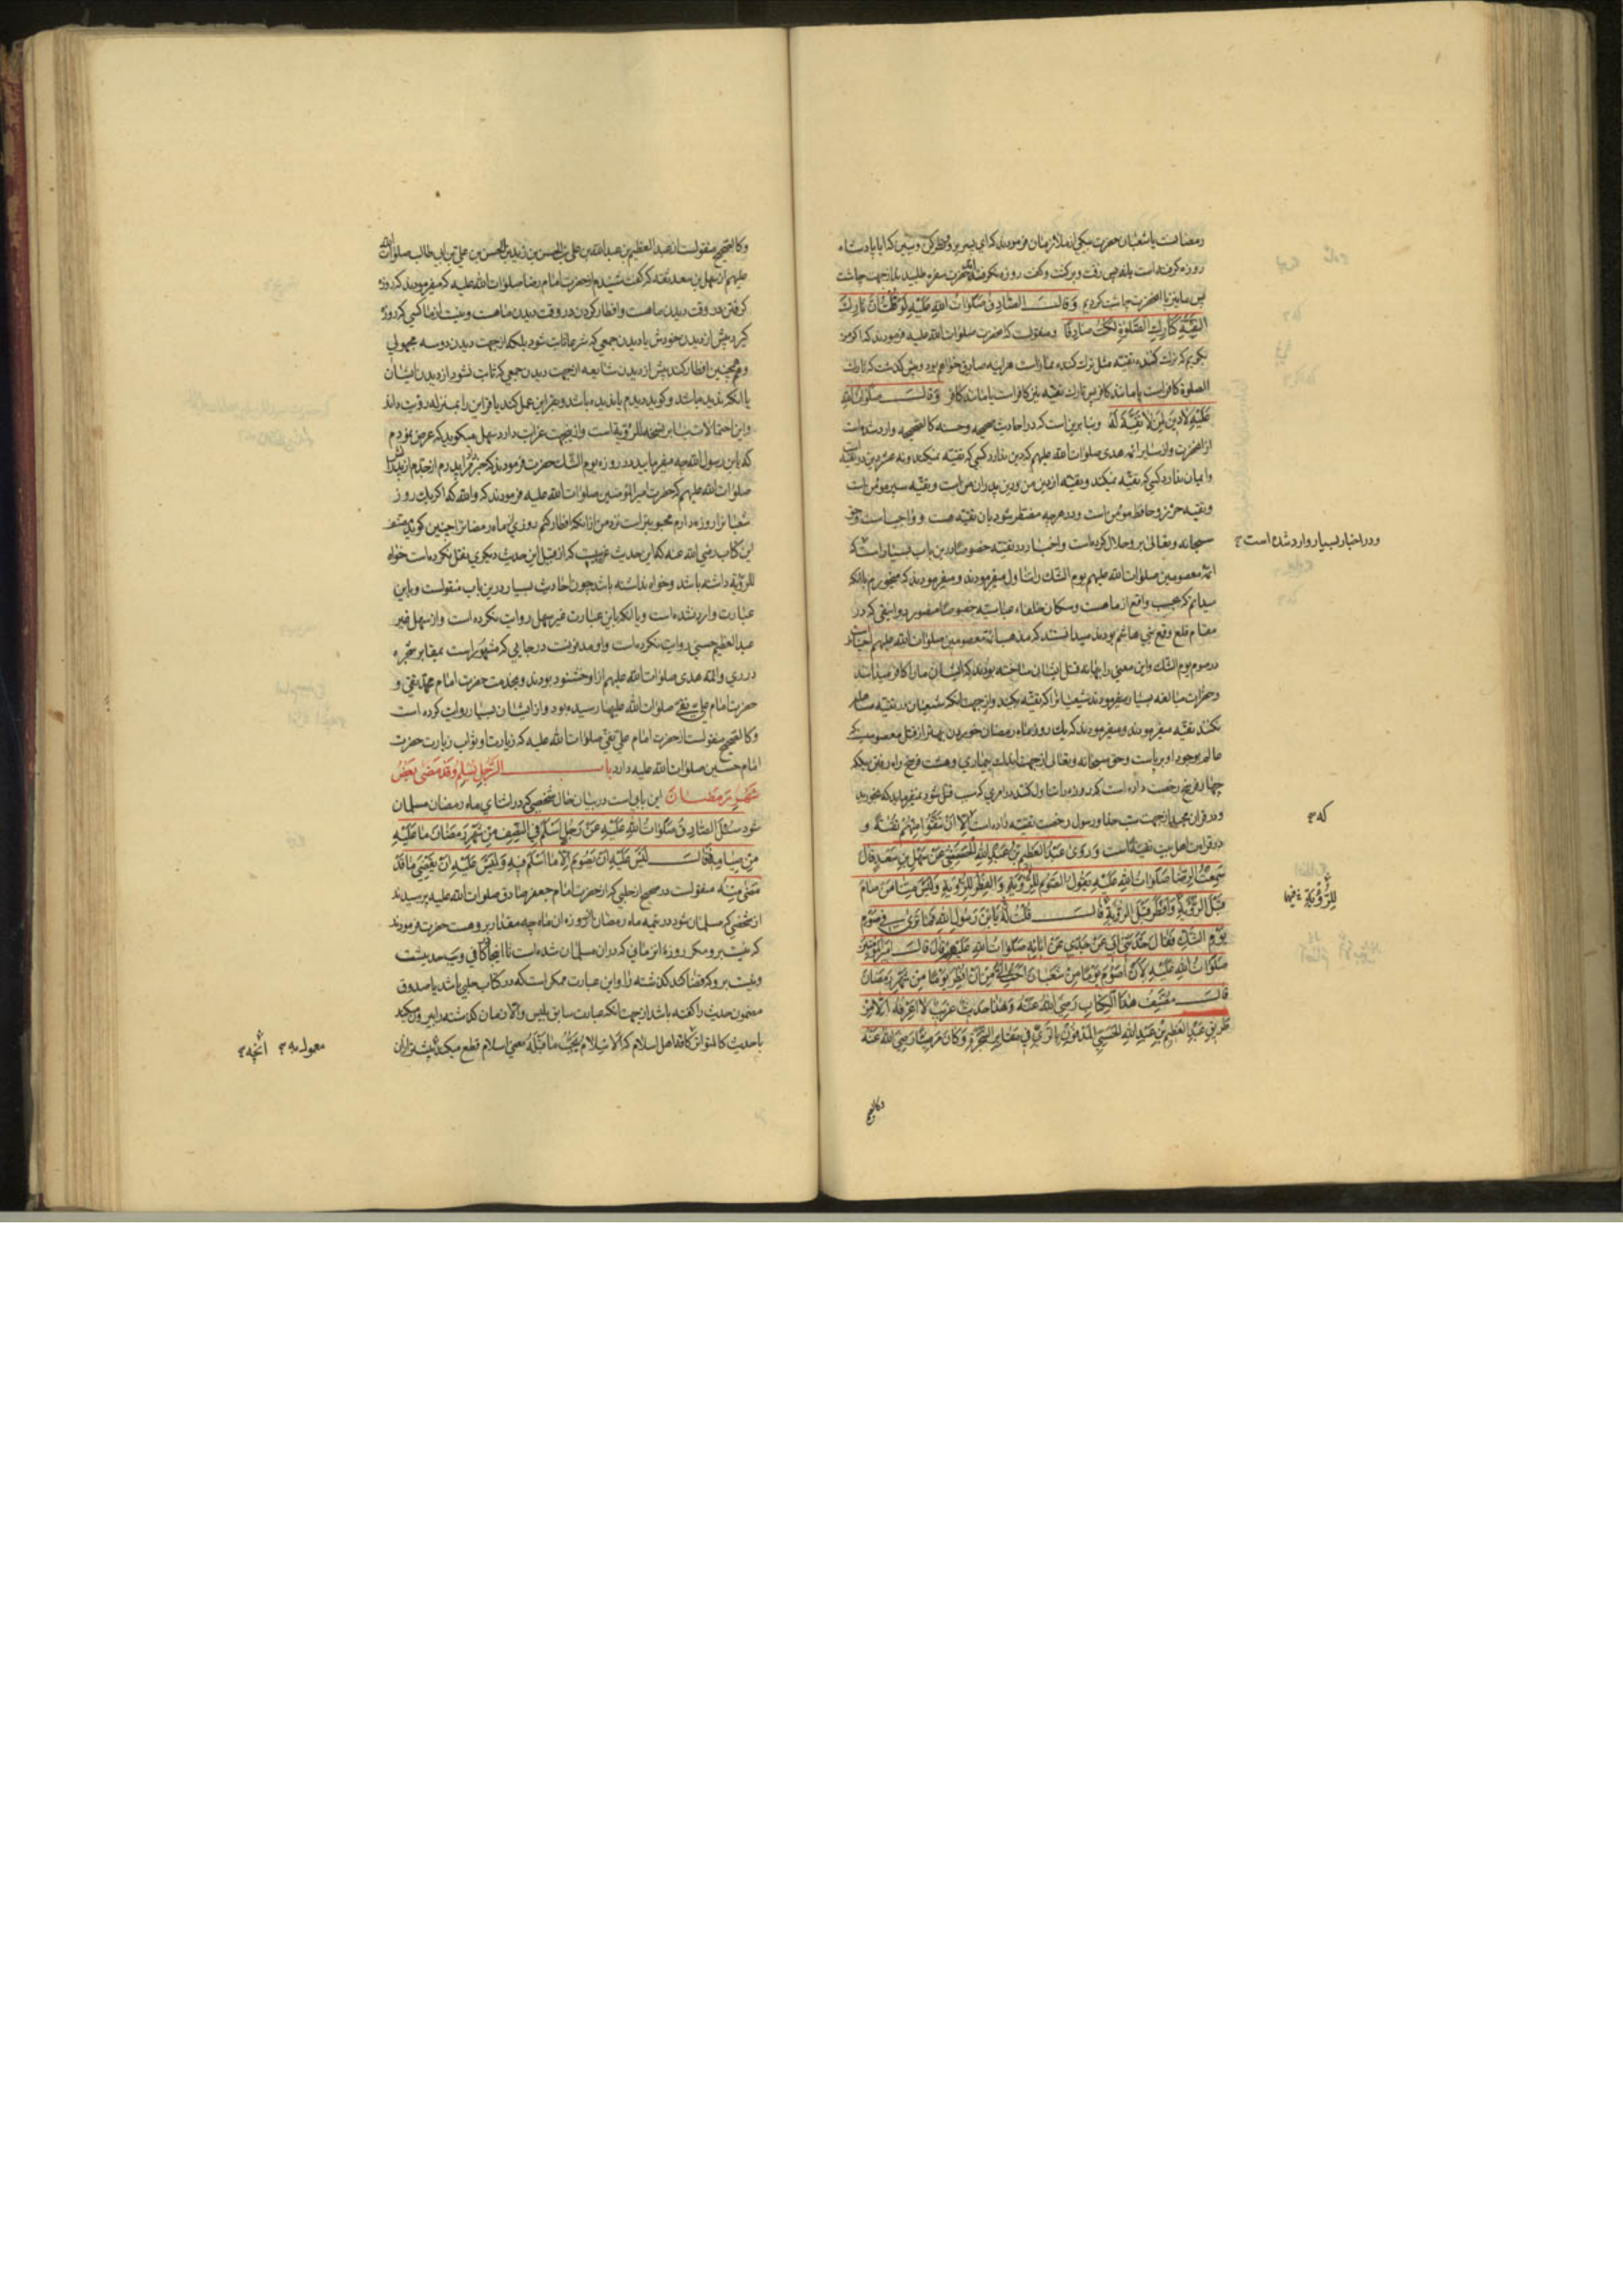 رمضانست یا شعبان حضرت بیکی از ملازمان فرمودند که ای پسر برو نظر کن و ببین که ایا پادشاه
روزه گرفته است یا نه پس رفت و برگشت و گفت روزه نگرفته حضرت سفره طلبیدند از جهت چاشت
پس ما نیز با آنحضرت چاشت کردیم وَقالَ الصّادِقُ صَلَوٰاتُ اللهِ عَلَیْهِ لَوْ قُلْتُ اَنَّ تٰارِكَ
التَّقِیَّةِ كَتٰارِكِ الصَّلوٰةِ لَكُنْتُ صٰادِقًا ومنقولست که آنحضرت صلوات الله علیه فرمودند که اگر من
بگویم که ترك کننده تقیه مثل ترك کننده نماز است هراینه صادق خواهم بود و پیش گذشت که تارك
الصلوة کافر است یا مانند کافر پس تارك تقیه نیز کافر است یا مانند کافر وَقالَ صَلَوٰاتُ اللهِ
عَلَیْهِ لٰادینَ لِمَنْ لٰا تَقِیَّةَ لَهُ وبنابرین است که در احادیث صحیحه و حسنه کالصحیحه وارد شده است
از آنحضرت و از سایر ائمه هدی صلوات الله علیهم که دین ندارد کسی که تقیه نمیکند و نه عشر دین در تقیه است
وایمان ندارد کسی که تقیه نمیکند و تقیه از دین من و دین پدران من است و تقیه سپر مؤمن است
وتقیه حرز و حافظ مؤمن است و در هرچه مضطر شود بان تقیه هست و واجب است و حق
سبحانه وتعالی برو حلال کرده است و اخبار در تقیه خصوصا درین باب بسیار است که
ائمه معصومین صلوات الله علیهم یوم الشك را تناول میفرمودند و میفرمودند که میخوریم با آنکه
میدانم که بحسب واقع از ماه است و سگان خلفاء عباسیه خصوصا منصور دوانیقی که در
مقام قلع وقمع بنی هاشم بودند میدانستند که مذهب ائمه معصومین صلوات الله علیهم اجتناب
در صوم یوم الشك و این معنی را بهانه قتل ایشان ساخته بودند که ایشان ما را کافر میدانند
وحضرات مبالغه بسیار میفرمودند شیعیانرا که تقیه بکنید و از جهت آنکه شیعیان در تقیه مساهله
نکنند تقیه میفرمودند و میفرمودند که یك روز ماه رمضان خوردن بهتر از قتل معصومیست که
عالم بوجود او برپاست و حق سبحانه وتعالی از جهت اندك بیماری و هشت فرسخ راه رفتن بلکه
چهار فرسخ رخصت داده است که روزه را تناول کنند در امری که سبب قتل شود نمیفرماید که مخورید
و در قران مجید از جهت سب خدا و رسول رخصت تقیه داده است اِلّٰا اَنْ تَتَّقُوا مِنْهُمْ تُقٰیةً و
در قراءت اهل بیت تقیةً است وَرَوىٰ عَبْدُ الْعَظیمِ بْنُ عَبْدِ اللهِ الْحَسَنِیُّ عَنْ سَهْلِ بْنِ سَعْدٍ قالَ
سَمِعْتُ الرِّضٰا صَلَوٰاتُ اللهِ عَلَیْهِ یَقُولُ الصَّوْمُ لِلرُّؤْیَةِ وَالْفِطْرُ لِلرُّؤْیَةِ وَلَیْسَ مِنّٰا مَنْ صٰامَ
قَبْلَ الرُّؤْیَةِ وَاَفْطَرَ قَبْلَ الرُّؤْیَةِ قالَ قُلْتُ لَهُ یَا ابْنَ رَسُولِ اللهِ فَمٰا تَرىٰ فی صَوْمِ
یَوْمِ الشَّكِّ فَقٰالَ حَدَّثَنی اَبی عَنْ جَدّی عَنْ اٰبٰائِهِ صَلَوٰاتُ اللهِ عَلَیْهِمْ قالَ قالَ اَمیرُ الْمُؤْمِنینَ
صَلَوٰاتُ اللهِ عَلَیْهِ لَاَنْ اَصُومَ یَوْمًا مِنْ شَعْبٰانَ اَحَبُّ اِلَیَّ مِنْ اَنْ اُفْطِرَ یَوْمًا مِنْ شَهْرِ رَمَضٰانَ
قالَ مُصَنِّفُ هٰذَا الْكِتٰابِ رَضِیَ اللهُ عَنْهُ وَهٰذٰا حَدیثٌ غَریبٌ لٰا اَعْرِفُهُ اِلّٰا مِنْ
طَریقِ عَبْدِ الْعَظیمِ بْنِ عَبْدِ اللهِ الْحَسَنِیِّ الْمَدْفُونِ بِالرَّیِّ فی مَقٰابِرِ الشَّجَرَةِ وَكٰانَ مَرْضِیًّا رَضِیَ اللهُ عَنْهُ
وکالصحیح
و در اخبار بسیار وارد شده است
که
لِلرُّؤْیَةِ
وکالصحیح منقولست از عبد العظیم بن عبد الله بن علی بن الحسن بن زید بن الحسن بن علی بن ابی طالب صلوات الله
علیهم از سهل بن سعد ثقه که گفت شنیدم از حضرت امام رضا صلوات الله علیه که میفرمودند که روزه
گرفتن در وقت دیدن ماهست و افطار کردن در وقت دیدن ماهست و نیست از ما کسی که روزه
گیرد پیش از دیدن خودش یا دیدن جمعی که شرعا ثابت شود بلکه از جهت دیدن دو سه مجهولی
و همچنین افطار کند پیش از دیدن شایعه از جهت دیدن جمعی که ثابت نشود از دیدن ایشان
یا آنکه ندیده باشد و گوید دیدم یا ندیده باشد و بقراین عمل کند یا قراین را بمنزله رؤیت داند
واین احتمالات بنابر نسخه للرؤیة است و ازینجهت غرابت دارد سهل میگوید که عرض نمودم
که یا بن رسول الله چه میفرمایید در روزه یوم الشك حضرت فرمودند که خبر داد پدرم از جدم از پدرانش
صلوات الله علیهم که حضرت امیر المؤمنین صلوات الله علیه فرمودند که والله که اگر یك روز
شعبانرا روزه دارم محبوبتر است نزد من از آنکه افطار کنم روزی از ماه رمضانرا چنین گوید مصنف
این کتاب رضی الله عنه که این حدیث غریبیست که از قبل این حدیث دیگری نقل نکرده است خواه
للرؤیة داشته باشد و خواه نداشته باشد چون احادیث بسیار درین باب منقولست و باین
عبارت وارد نشده است و یا آنکه باین عبارت غیر سهل روایت نکرده است و از سهل غیر
عبد العظیم حسنی روایت نکرده است و او مدفونست در جایی که مشهور است بمقابر شجره
در ری و ائمه هدی صلوات الله علیهم از او خشنود بودند و بخدمت حضرت امام محمد تقی و
حضرت امام علی نقی صلوات الله علیهما رسیده بود و از ایشان بسیار روایت کرده است
وکالصحیح منقولست از حضرت امام علی نقی صلوات الله علیه که زیارت او ثواب زیارت حضرت
امام حسین صلوات الله علیه دارد بابُ الرَّجُلِ یُسْلِمُ وَقَدْ مَضىٰ بَعْضُ
شَهْرِ رَمَضٰانَ این بابی است در بیان حال شخصی که در اثنای ماه رمضان مسلمان
شود سُئِلَ الصّٰادِقُ صَلَوٰاتُ اللهِ عَلَیْهِ عَنْ رَجُلٍ اَسْلَمَ فِی النِّصْفِ مِنْ شَهْرِ رَمَضٰانَ مٰا عَلَیْهِ
مِنْ صِیٰامِهِ فَقٰالَ لَیْسَ عَلَیْهِ اَنْ یَصُومَ اِلّٰا مٰا اَسْلَمَ فیهِ وَلَیْسَ عَلَیْهِ اَنْ یَقْضِیَ مٰا قَدْ
مَضىٰ مِنْهُ منقولست در صحیح از حلبی که از حضرت امام جعفر صادق صلوات الله علیه پرسیدند
از شخصی که مسلمان شود در نیمه ماه رمضان از روزه آن ماه چه مقدار برو هست حضرت فرمودند
که نیست برو مگر روزه انزمانی که دران مسلمان شده است تا اینجا کافی و حدیثست
و نیست برو که قضا کند گذشته را و این عبارت ممکن است که در کتاب حلبی باشد یا صدوق
مضمون حدیث را گفته باشد از جهت آنکه عبارت سابق بلیس و الّا زمان گذشته را بیرون میکند
با حدیث کالمتواتر کافه اهل اسلام که اَلْاِسْلٰامُ یَجُبُّ مٰا قَبْلَهُ یعنی اسلام قطع میکند پیشتر از آن
معمول به
آنچه